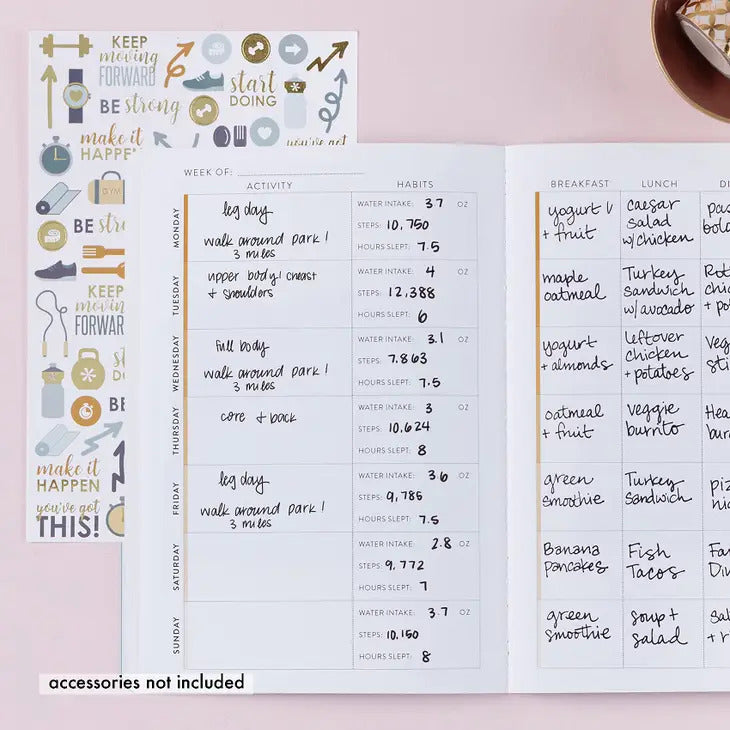 KEEP
moving
FORWARD
start
DOING
BE strong
make it
HAPPEN
you've got
GYM
BE stro
KEEP
moving
FORWAR
st
DO
BE
make it
HAPPEN
you've got
THIS!
WEEK OF:
ACTIVITY HABITS
MONDAY
leg day
walk around park!
3 miles
WATER INTAKE: 3.7 OZ
STEPS: 10,750
HOURS SLEPT: 7.5
TUESDAY
upper body! chest
+ shoulders
WATER INTAKE: 4 OZ
STEPS: 12,388
HOURS SLEPT: 6
WEDNESDAY
full body
walk around park!
3 miles
WATER INTAKE: 3.1 OZ
STEPS: 7,863
HOURS SLEPT: 7.5
THURSDAY
core + back
WATER INTAKE: 3 OZ
STEPS: 10,624
HOURS SLEPT: 8
FRIDAY
leg day
walk around park!
3 miles
WATER INTAKE: 3.6 OZ
STEPS: 9,785
HOURS SLEPT: 7.5
SATURDAY
WATER INTAKE: 2.8 OZ
STEPS: 9,772
HOURS SLEPT: 7
SUNDAY
WATER INTAKE: 3.7 OZ
STEPS: 10,150
HOURS SLEPT: 8
BREAKFAST LUNCH DI
yogurt
+ fruit
caesar
salad
w/chicken
maple
oatmeal
Turkey
Sandwich
w/avocado
yogurt
+ almonds
leftover
chicken
+ potatoes
Veg
sti
oatmeal
+ fruit
veggie
burrito
Hea
bur
green
smoothie
Turkey
Sandwich
Banana
Pancakes
Fish
Tacos
Din
green
smoothie
soup +
salad
Sal
+ r
accessories not included